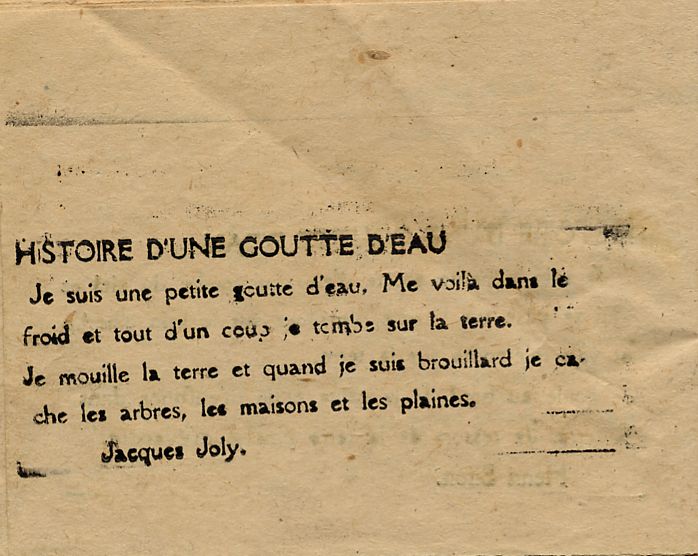 HISTOIRE D'UNE GOUTTE D'EAU
Je suis une petite goutte d'eau. Me voilà dans le
froid et tout d'un coup je tombe sur la terre.
Je mouille la terre et quand je suis brouillard je ca-
che les arbres, les maisons et les plaines.
Jacques Joly.